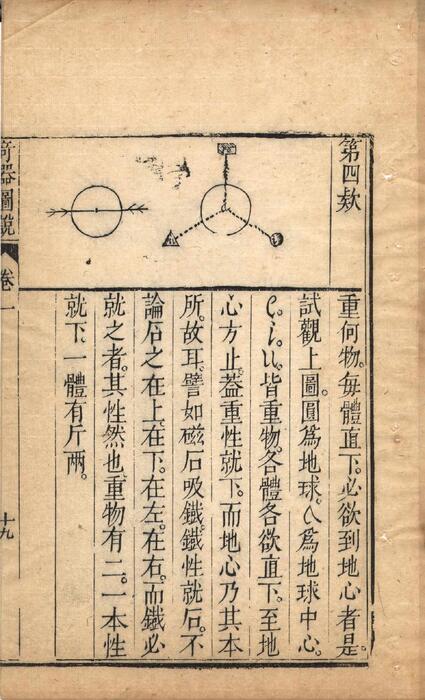 第四款
重何物。每體直下。必欲到地心者是。
試觀上圖。圓爲地球。乀爲地球中心。
皆重物。各體各欲直下。至地
心方止。葢重性就下。而地心乃其本
所。故耳。譬如磁石吸鐵。鐵性就石。不
論石之在上。在下。在左。在右。而鐵必
就之者。其性然也。重物有二。一本性
就下。一體有斤兩。
奇器圖說
卷一
十九